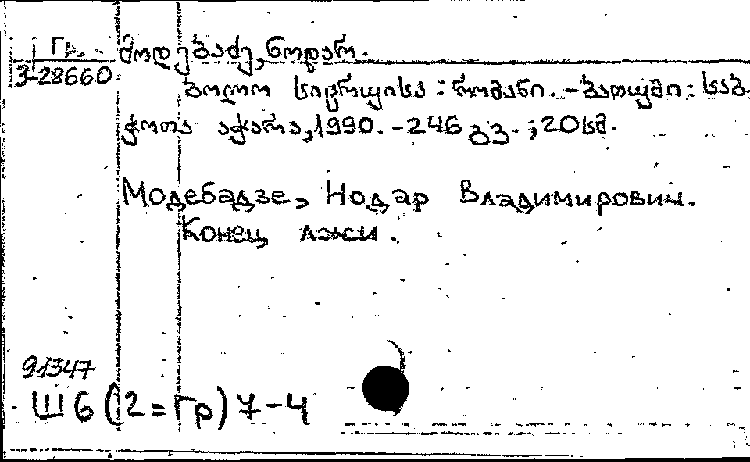 Гр.
3-28660
მოდებაძე, ნოდარ.
ბოლო სიცრუისა : რომანი. - ბათუმი : საბ
ჭოთა აჭარა, 1990. - 246 გვ. ; 20 სმ.
Модебадзе, Нодар Владимирович.
Конец лжи.
91347
Ш6(2=Гр)7-4